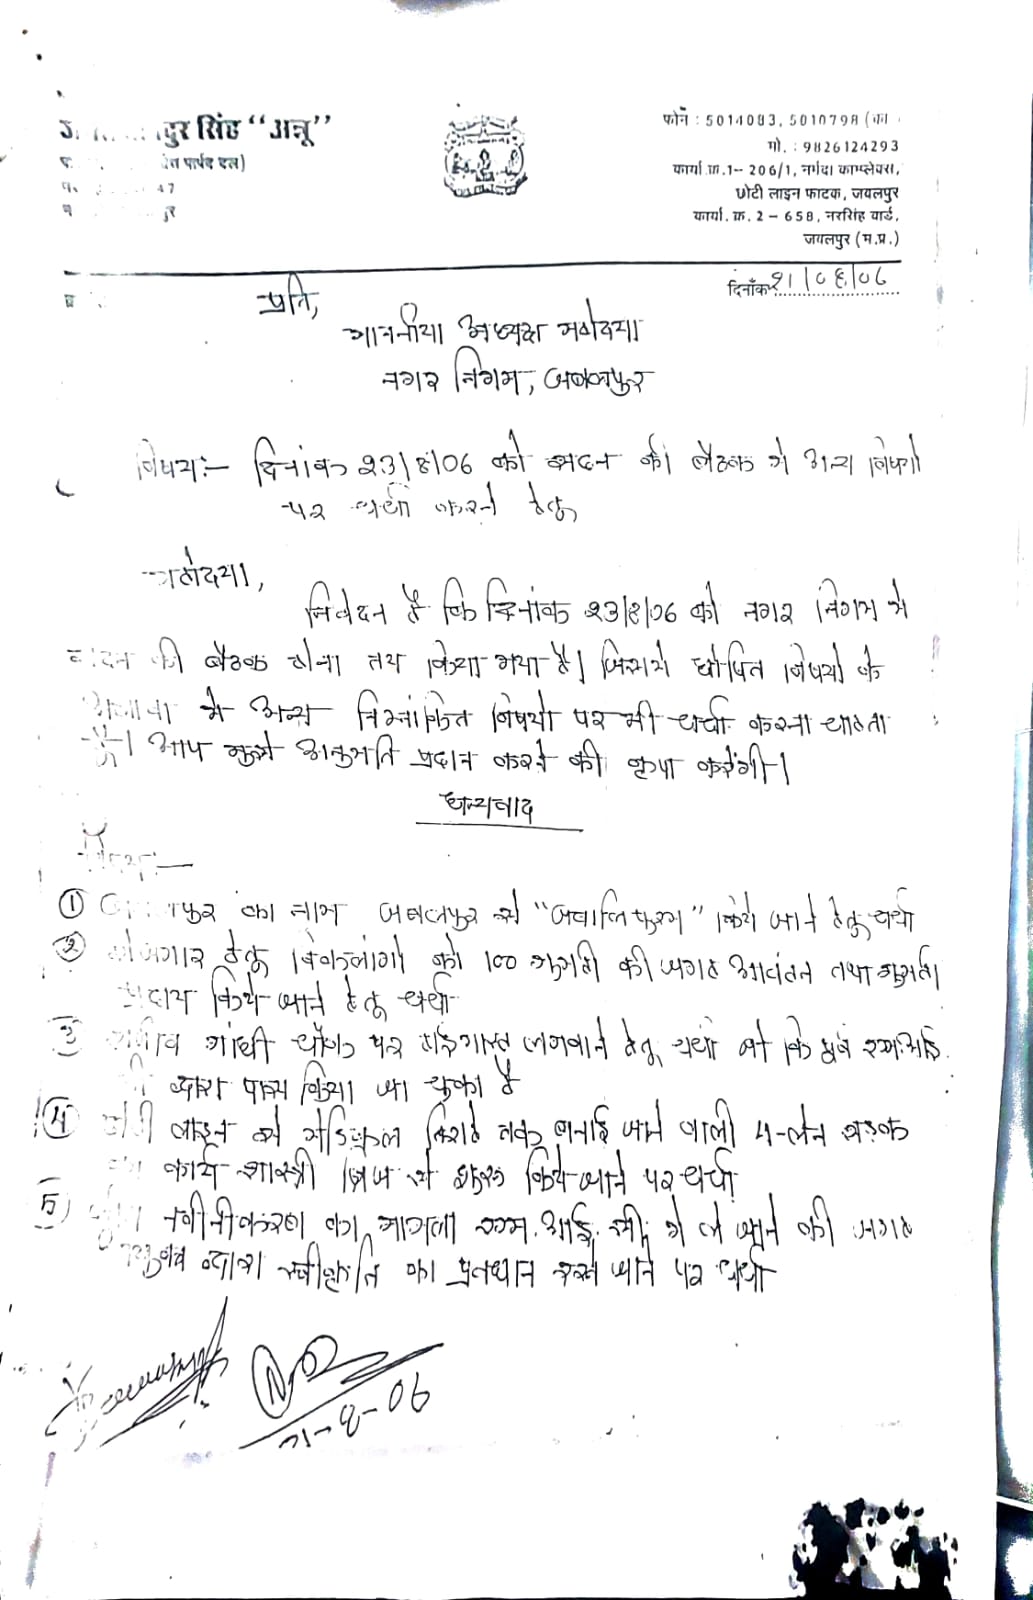 दुर सिंह "अन्नू"
पार्षद दल)
47
फोन : 5014083, 5010798
मो. : 9826124293
कार्या.क्र.1- 206/1, नर्मदा काम्प्लेक्स,
छोटी लाइन फाटक, जबलपुर
कार्या. क्र. 2 - 658, नरसिंह वार्ड,
जबलपुर (म.प्र.)
दिनाँक 21/08/06
प्रति,
माननीया अध्यक्ष महोदया
नगर निगम, जबलपुर
विषय:- दिनांक 23/8/06 को सदन की बैठक मे अन्य विषयो
पर चर्चा करने हेतू
महोदया,
निवेदन है कि दिनांक 23/8/06 को नगर निगम मे
सदन की बैठक होना तय किया गया है। जिसमे घोषित विषयो के
अलावा मे अन्य निम्नांकित विषयो पर भी चर्चा करना चाहता
हूँ। आप मुझे अनुमति प्रदान करने की कृपा करेंगी।
धन्यवाद
① का नाम जबलपुर से "जबालिपुरम" किये जाने हेतू चर्चा
② रोजगार हेतू विकलांगो को 100 की जगह आवंतन तथा
किये जाने हेतू चर्चा
③ राजीव गांधी चौक पर हाईमास्ट लगवाने हेतू चर्चा जो कि पूर्व एम.आई.
द्वारा पास किया जा चुका है
④ छोटी लाइन से मेडिकल तिराहे तक बनाई जाने वाली 4-लेन सड़क
कार्य शास्त्री ब्रिज से शुरू किये जाने पर चर्चा
⑤ नवीनीकरण का मामला एम.आई.सी. मे ले जाने की जगह
द्वारा स्वीकृति का प्रवधान रखे जाने पर चर्चा
21-8-06